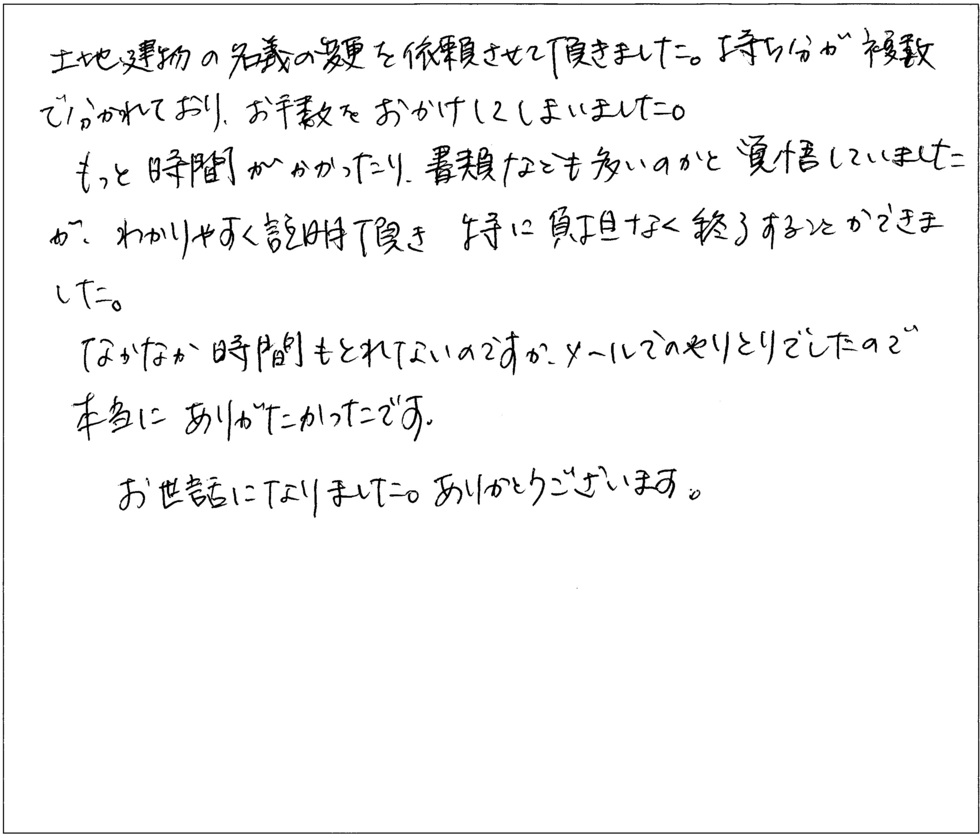 土地建物の名義の変更を依頼させて頂きました。持ち分が複数
で分かれており、お手数をおかけしてしまいました。
もっと時間がかかったり、書類なども多いのかと覚悟していました
が、わかりやすく説明頂き 特に負担なく終了することができま
した。
なかなか時間もとれないのですが、メールでのやりとりでしたので
本当にありがたかったです。
お世話になりました。ありがとうございます。